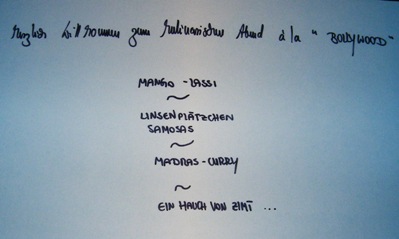 Herzlich Willkommen zum kulinarischen Abend à la "BOLLYWOOD"
MANGO-LASSI
~
LINSENPLÄTZCHEN
SAMOSAS
~
MADRAS-CURRY
~
EIN HAUCH VON ZIMT ...